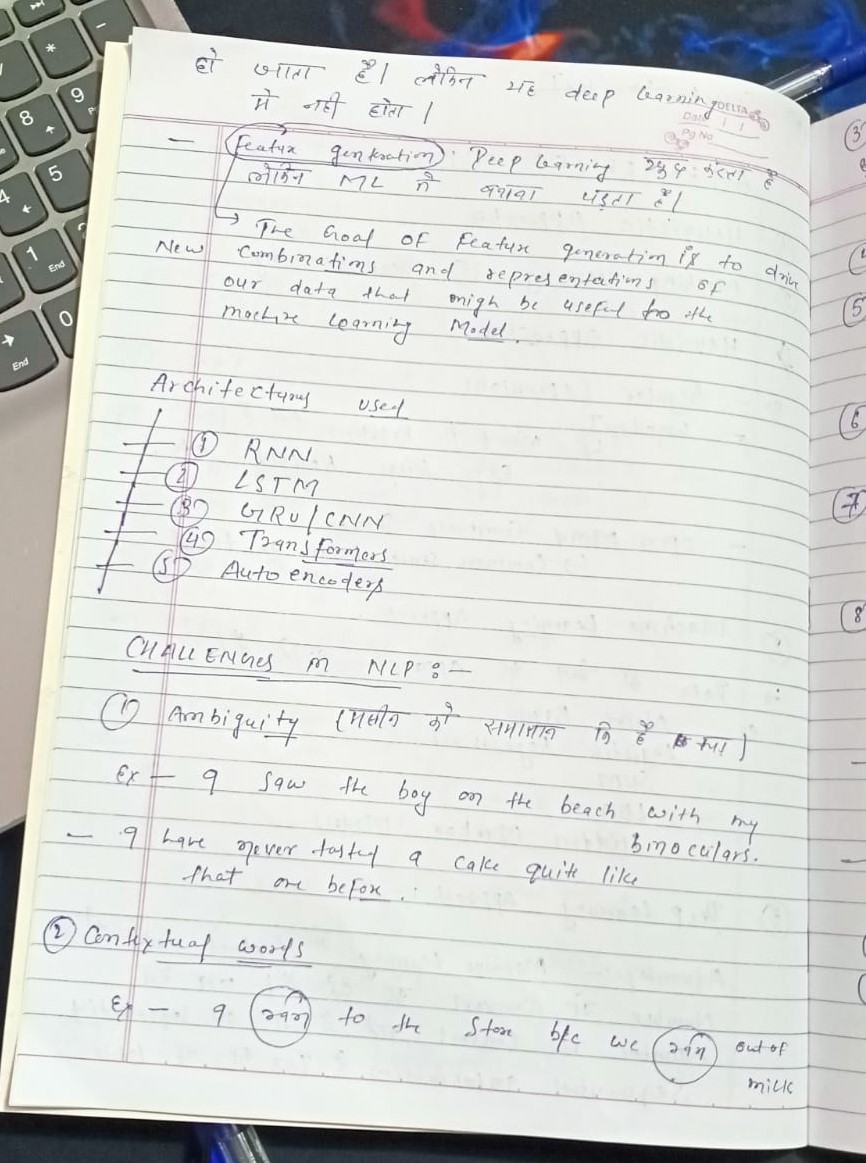 हो जाता है। लेकिन यह deep learning
में नही होता।
DELTA
Date
Pg No.
— Feature generation : Deep learning खुद करता है
लेकिन ML में बनाना पड़ता है।
→ The Goal of Feature generation is to drive
New combinations and representations of
our data that migh be useful to the
machine learning Model.
Architectures used
① RNN
② LSTM
③ GRU/CNN
④ Transformers
⑤ Autoencoders
CHALLENGES in NLP :-
① Ambiguity (मशीन को समझाना
Ex — I saw the boy on the beach with my
binoculars.
— I have never tasted a cake quite like
that one before.
② Contextual words
Ex — I रन to the Store b/c we रन out of
milk
③
④
⑤
⑥
⑦
⑧
*
-
8
9
4
5
1
End
0
End